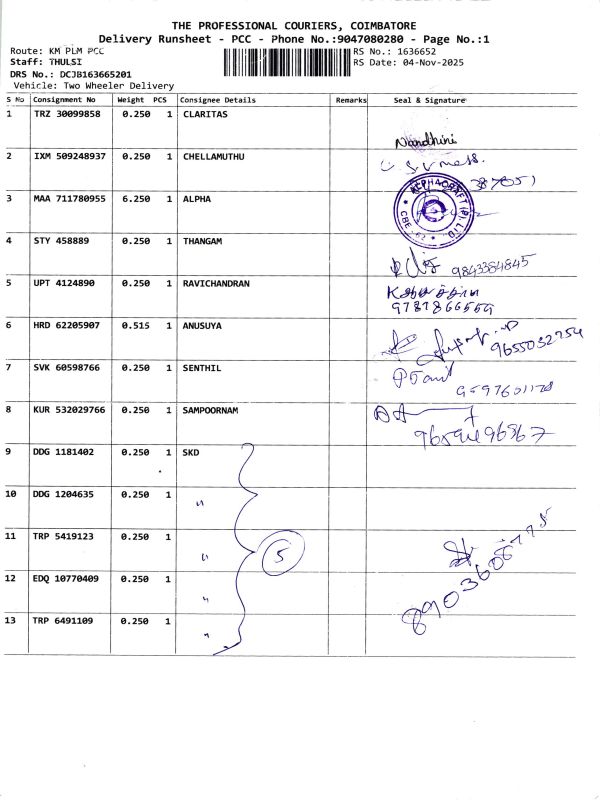 THE PROFESSIONAL COURIERS, COIMBATORE
Delivery Runsheet - PCC - Phone No.:9047080280 - Page No.:1
Route: KM PLM PCC RS No.: 1636652
Staff: THULSI RS Date: 04-Nov-2025
DRS No.: DCJB163665201
Vehicle: Two Wheeler Delivery
S No Consignment No Weight PCS Consignee Details Remarks Seal & Signature
1 TRZ 30099858 0.250 1 CLARITAS
Nandhini
2 IXM 509248937 0.250 1 CHELLAMUTHU
3 MAA 711780955 6.250 1 ALPHA
4 STY 458889 0.250 1 THANGAM
9843384845
5 UPT 4124890 0.250 1 RAVICHANDRAN
9787866559
6 HRD 62205907 0.515 1 ANUSUYA
9655032254
7 SVK 60598766 0.250 1 SENTHIL
9597601178
8 KUR 532029766 0.250 1 SAMPOORNAM
9 DDG 1181402 0.250 1 SKD
10 DDG 1204635 0.250 1 "
11 TRP 5419123 0.250 1 " 5
12 EDQ 10770409 0.250 1 "
13 TRP 6491109 0.250 1 "